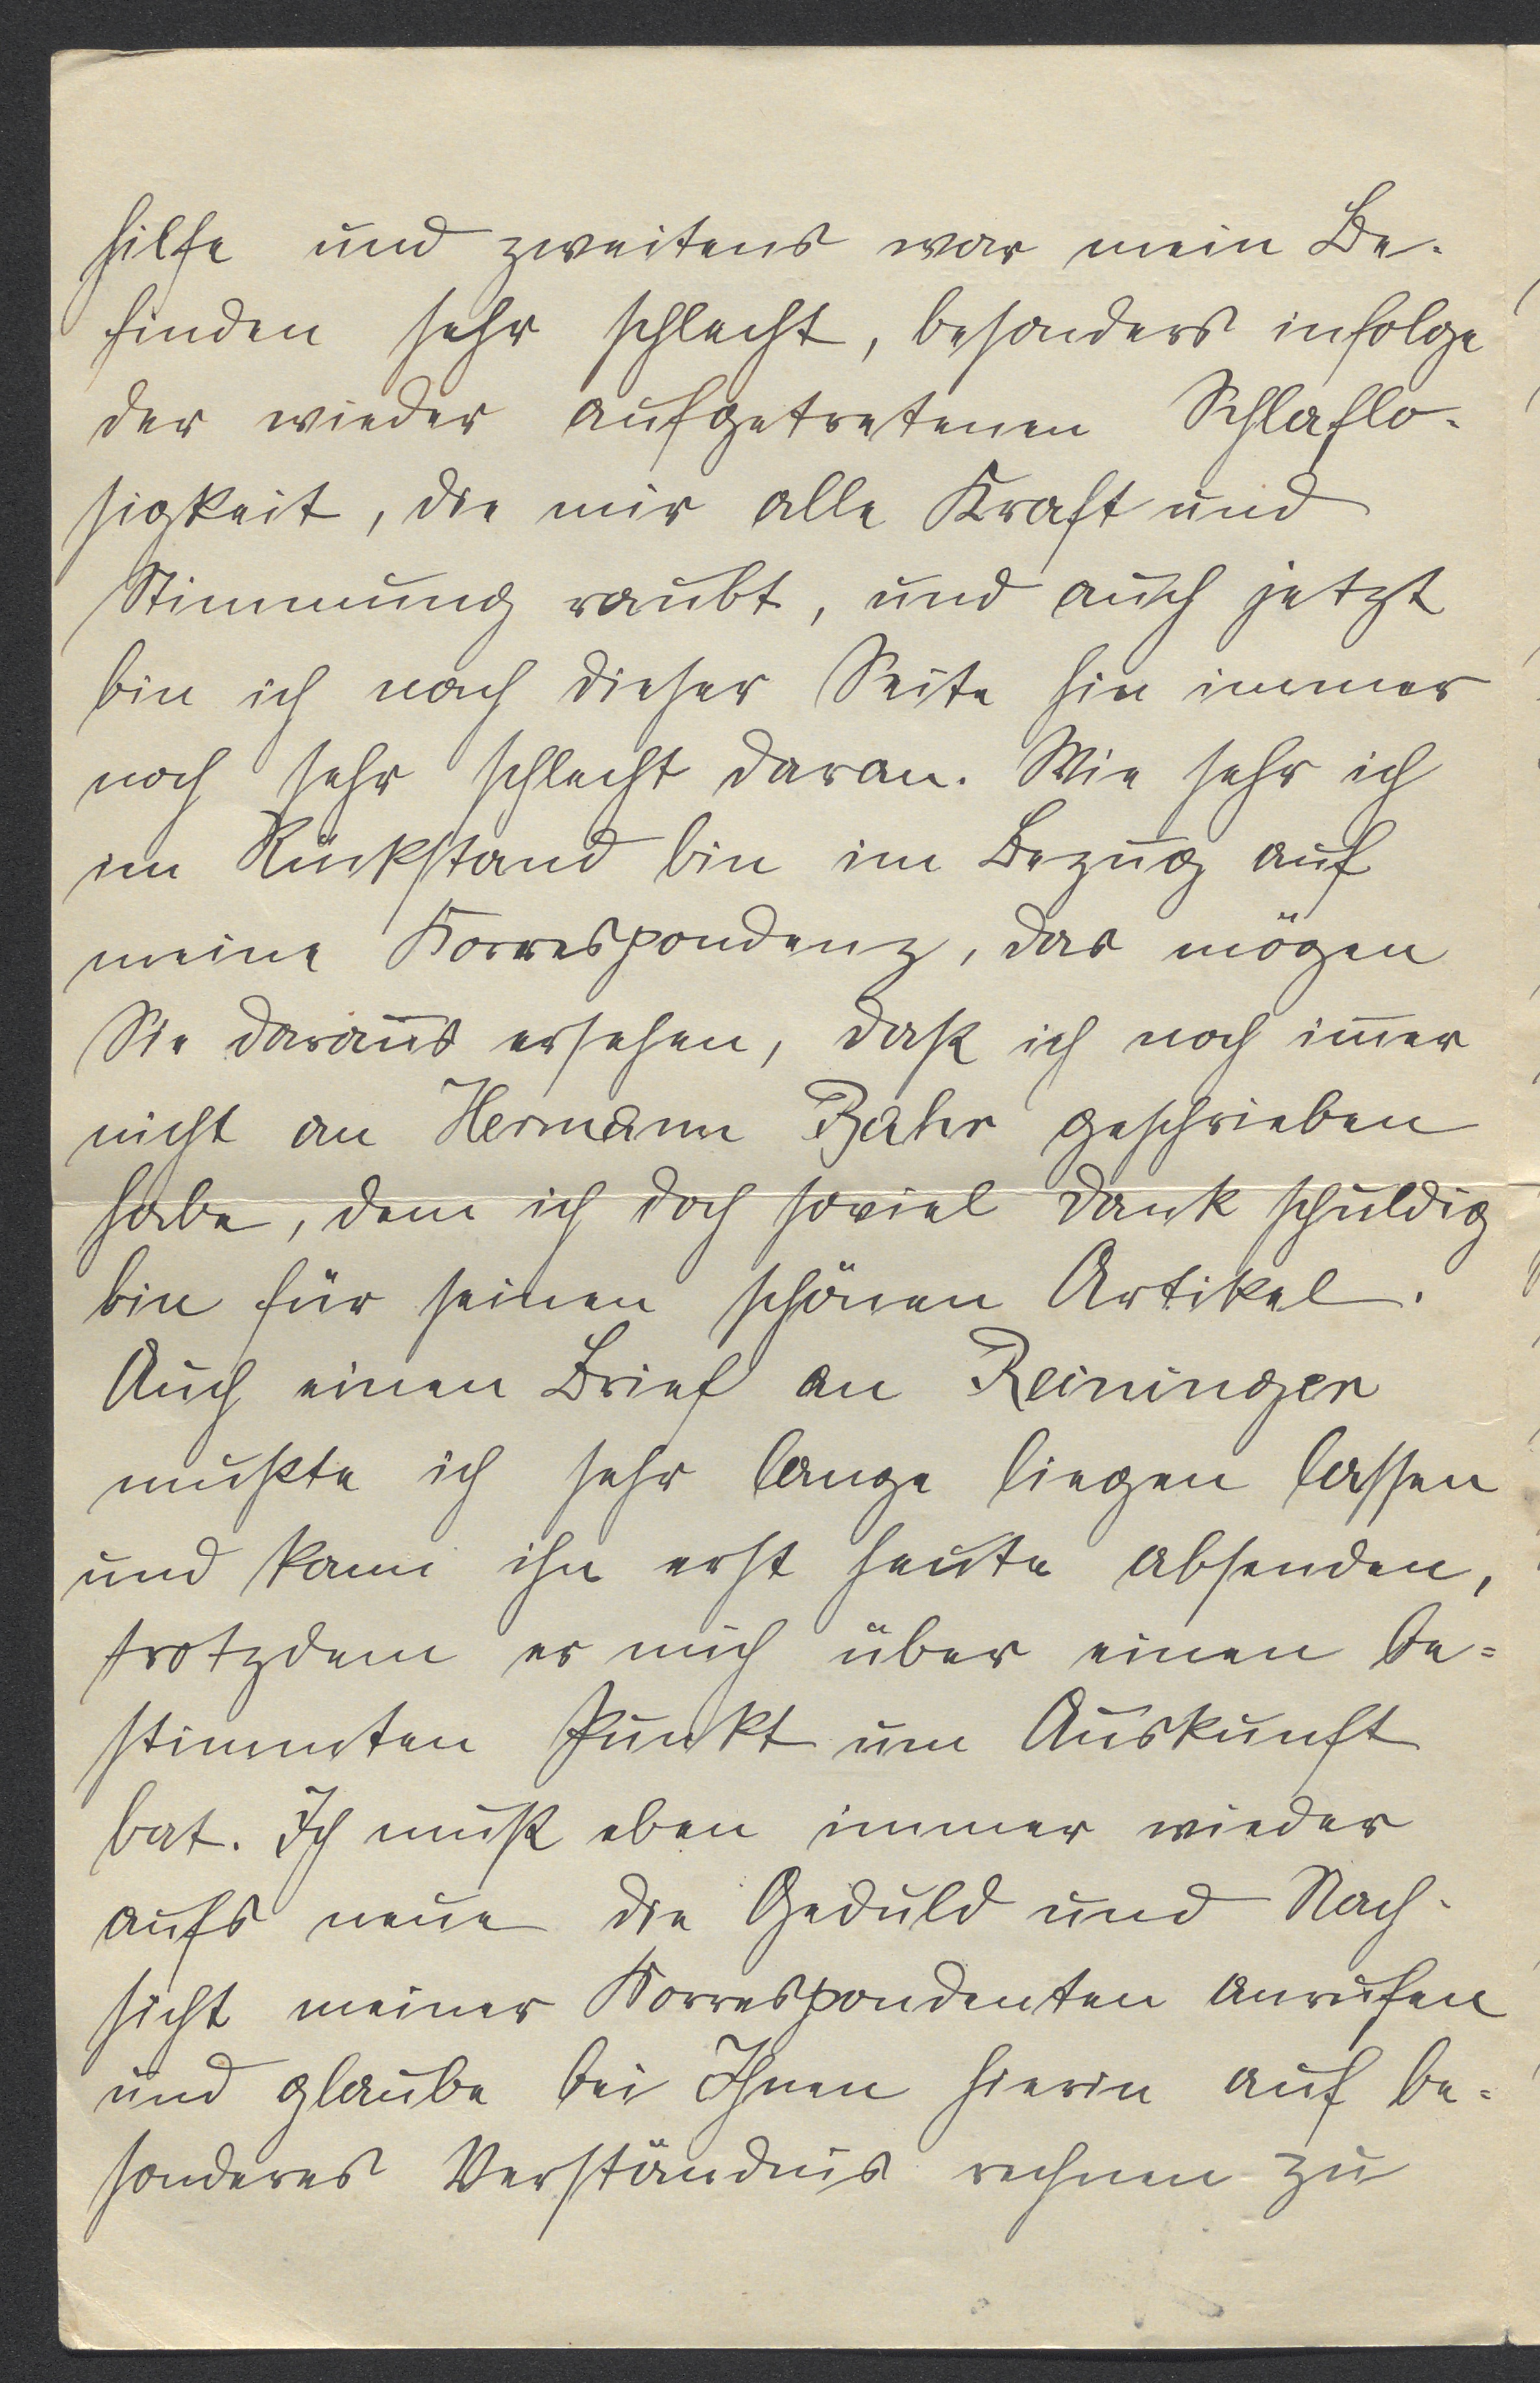 hilfe und zweitens war mein Be-
finden sehr schlecht, besonders infolge
der wieder aufgetretenen Schlaflo-
sigkeit, die mir alle Kraft und
Stimmung raubt, und auch jetzt
bin ich nach dieser Seite hin immer
noch sehr schlecht daran. Wie sehr ich
im Rückstand bin im Bezug auf
meine Korrespondenz, das mögen
Sie daraus ersehen, daß ich noch im̅er
nicht an Hermann Bahr geschrieben
habe, dem ich doch soviel Dank schuldig
bin für seinen schönen Artikel.
Auch einen Brief an Reininger
mußte ich sehr lange liegen lassen
und kann ihn erst heute absenden,
trotzdem er mich über einen be=
stimmten Punkt um Auskunft
bat. Ich muß eben immer wieder
aufs neue die Geduld und Nach-
sicht meiner Korrespondenten anrufen
und glaube bei Ihnen hierin auf be=
sonderes Verständnis rechnen zu